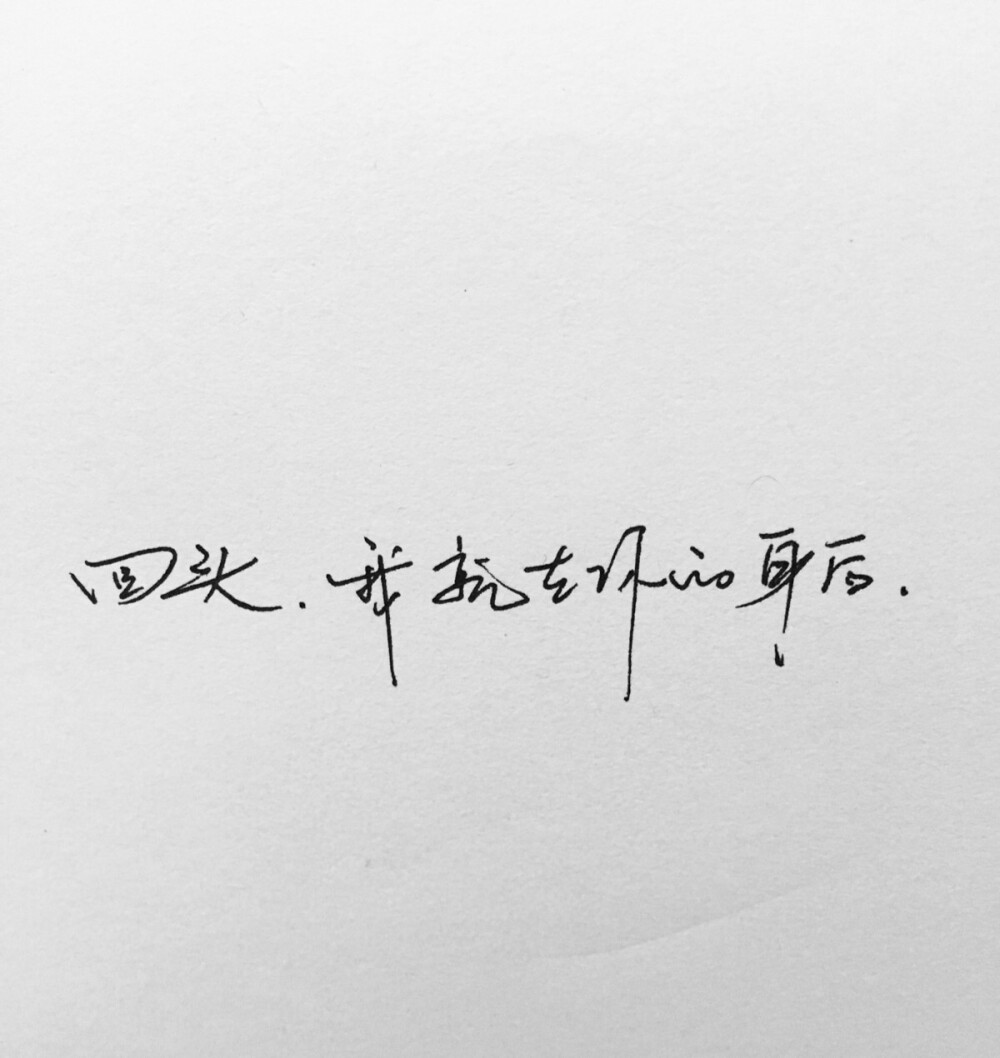 回头.我就在你的身后.